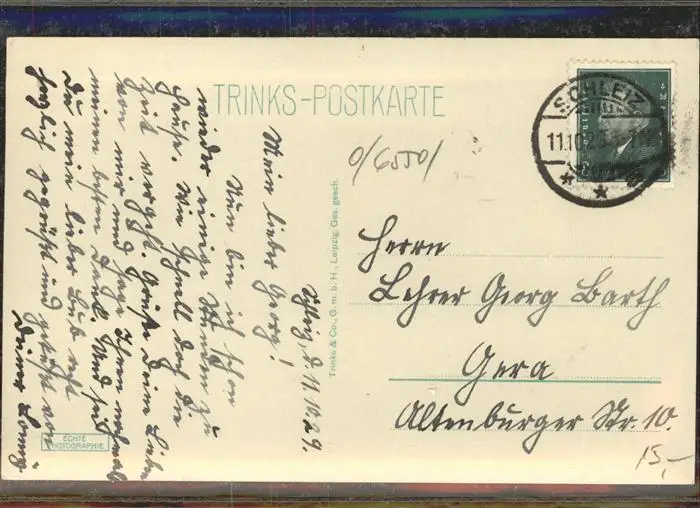 TRINKS-POSTKARTE
Mein lieber Georg!
Nun bin ich schon
wieder einige Stunden zu
Hause. Wie schnell doch die
Zeit vergeht. Grüße Deine Lieben
von mir und sage Ihnen nochmals
meinen besten Dank. Und sei
Du mein lieber Bub recht
herzlich gegrüßt und geküßt von
Deiner
d. 11.10.29.
Trinks & Co., G. m. b. H., Leipzig. Ges. gesch.
ECHTE
PHOTOGRAPHIE
0/6550/
SCHLEIZ
11.10.29
Herrn
Lehrer Georg Barth
Gera
Altenburger Str. 10.
15,-